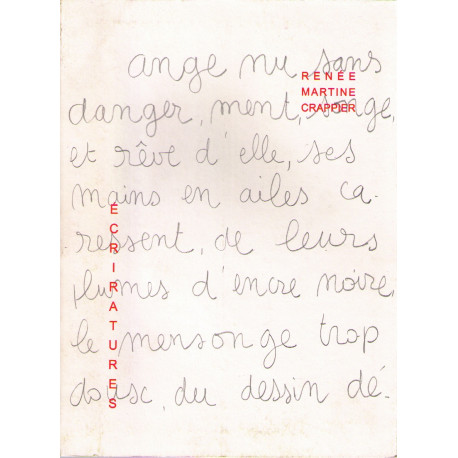 ange nu sans
RENÉE
MARTINE
CRAPPIER
danger, ment, songe,
et rêve d'elle, ses
mains en ailes ca-
ressent, de leurs
plumes d'encre noire,
le mensonge trop
dousc, du dessin dé-
ÉCRIRATURES